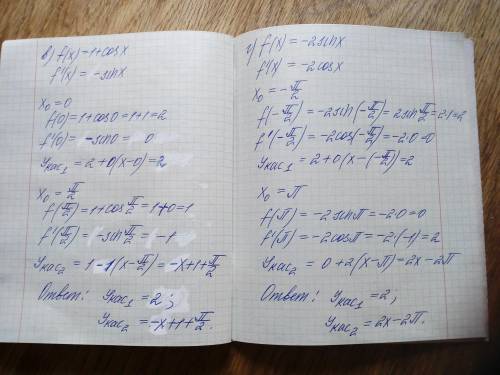 в) f(x)=1+cosx
f'(x)=-sinx
x₀=0
f(0)=1+cos0=1+1=2
f'(0)=-sin0=0
Yкас₁=2+0(x-0)=2
x₀=π/2
f(π/2)=1+cosπ/2=1+0=1
f'(π/2)=-sinπ/2=-1
Yкас₂=1-1(x-π/2)=-x+1+π/2
Ответ: Yкас₁=2;
Yкас₂=-x+1+π/2.
г) f(x)=-2sinx
f'(x)=-2cosx
x₀=-π/2
f(-π/2)=-2sin(-π/2)=2sinπ/2=2·1=2
f'(-π/2)=-2cos(-π/2)=-2·0=0
Yкас₁=2+0(x-(-π/2))=2
x₀=π
f(π)=-2sinπ=-2·0=0
f'(π)=-2cosπ=-2·(-1)=2
Yкас₂=0+2(x-π)=2x-2π
Ответ: Yкас₁=2;
Yкас₂=2x-2π.